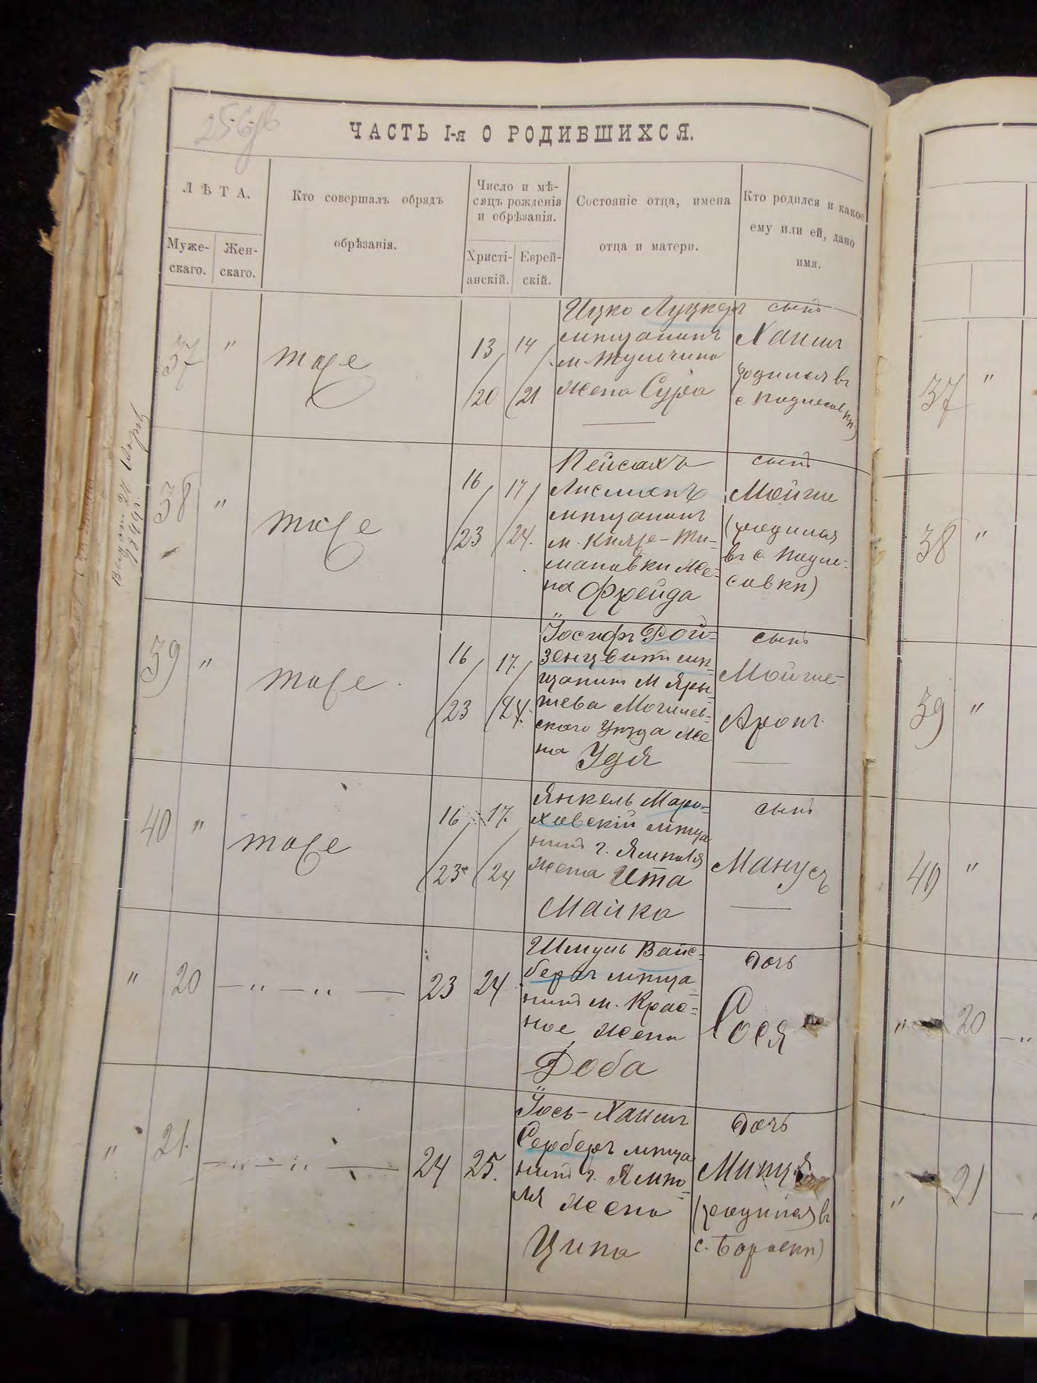 256об
ЧАСТЬ I-я О РОДИВШИХСЯ.
Л Ѣ Т А.
Муже-
скаго.
Жен-
скаго.
Кто совершалъ обрядъ
обрѣзанія.
Число и мѣ-
сяцъ рожденія
и обрѣзанія.
Христі-
анскій.
Еврей-
скій.
Состояніе отца, имена
отца и матери.
Кто родился и какое
ему или ей, дано
имя.
37 "
тоже
13/20
14/21
Ицко Луцкеръ
мѣщанинъ
м. Тульчина
жена Сура
сынъ
Хаимъ
родился въ
с. Подлесовки)
38 "
тоже
16/23
17/24.
Пейсахъ
мѣщанинъ
м. Княже-Ти-
мановки же-
на Фрейда
сынъ
Мойше
(родился
въ с. Подле-
совки)
39 "
тоже
16/23
17/24.
Іосифъ Рой-
зенцвитъ мѣ-
щанинъ м Яры-
шева Могилев-
скаго уѣзда же
на Удя
сынъ
Мойше-
Аронъ
40 "
тоже
16/23
17/24
Янкель Маро-
ховскій мѣща
нинъ г. Ямполя
жена Ита
Малка
сынъ
Манусъ
" 20
— " — " —
23
24
Шмуль Вайс-
бергъ мѣща-
нинъ м. Крас-
ное жена
Доба
дочь
Сося
" 21
— " — " —
24
25.
Іось-Хаимъ
Серберъ мѣща
нинъ г. Ямпо-
ля жена
Ципа
дочь
(родилась въ
37 "
38 "
39 "
40 "
" 20 — "
" 21 —